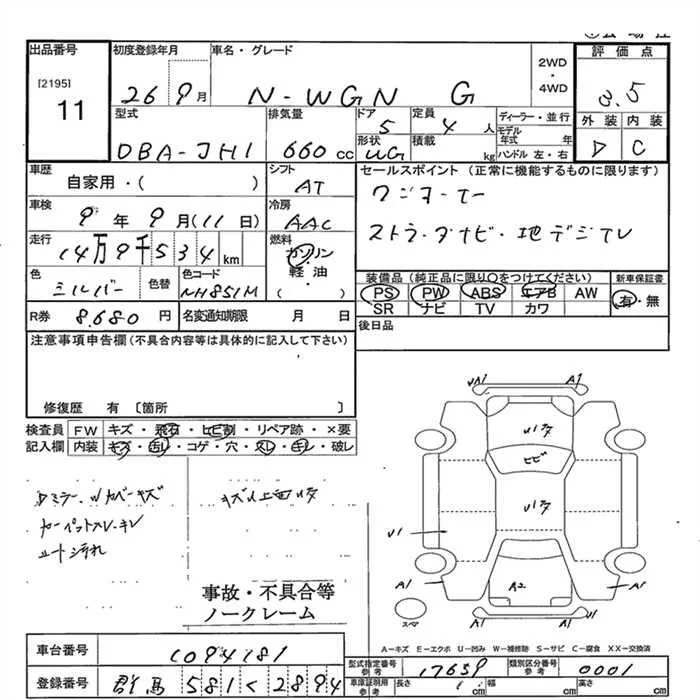 出品番号
[2195]
11
初度登録年月
26 9 月
車名・グレード
N-WGN G
2WD
・
4WD
評価点
3.5
外装 内装
D C
型式
DBA-JH1
排気量
660 cc
ドア
5
定員
4 人
形状
WG
積載
kg
ディーラー・並行
モデル
年式 年
ハンドル 左・右
車歴
自家用・( )
シフト
AT
車検
9 年 9 月(11 日)
冷房
AAC
走行
14万9千534 km
燃料
ガソリン
軽・油
( )
色
シルバー
色替
色コード
NH851M
R券
8.680 円
名変通知期限 月 日
セールスポイント (正常に機能するものに限ります)
ワンオーナー
ストラーダナビ・地デジTV
装備品 (純正品に限り○をつけてください)
新車保証書
PS PW ABS エアB AW
SR ナビ TV カワ
有・無
後日品
注意事項申告欄(不具合内容等は具体的に記入して下さい)
修復歴 有 〔箇所 〕
検査員
記入欄
FW キズ・飛石・ヒビ割・リペア跡・×要
内装 キズ・汚レ・コゲ・穴・スレ・キレ・破レ
カーペットスレ・キレ
シート汚れ
事故・不具合等
ノークレーム
UA1 A1
U1タ
ヒビ
U1タ
U1
A2
A1 A1
スペア
A1
A-キズ E-エクボ U-凹み W-補修跡 S-サビ C-腐食 XX-交換済
車台番号
1094181
登録番号
群馬 581 く 2894
型式指定番号
参考
17659
類別区分番号
参考
0001
車庫証明用
参考
長さ cm
幅 cm
高さ cm